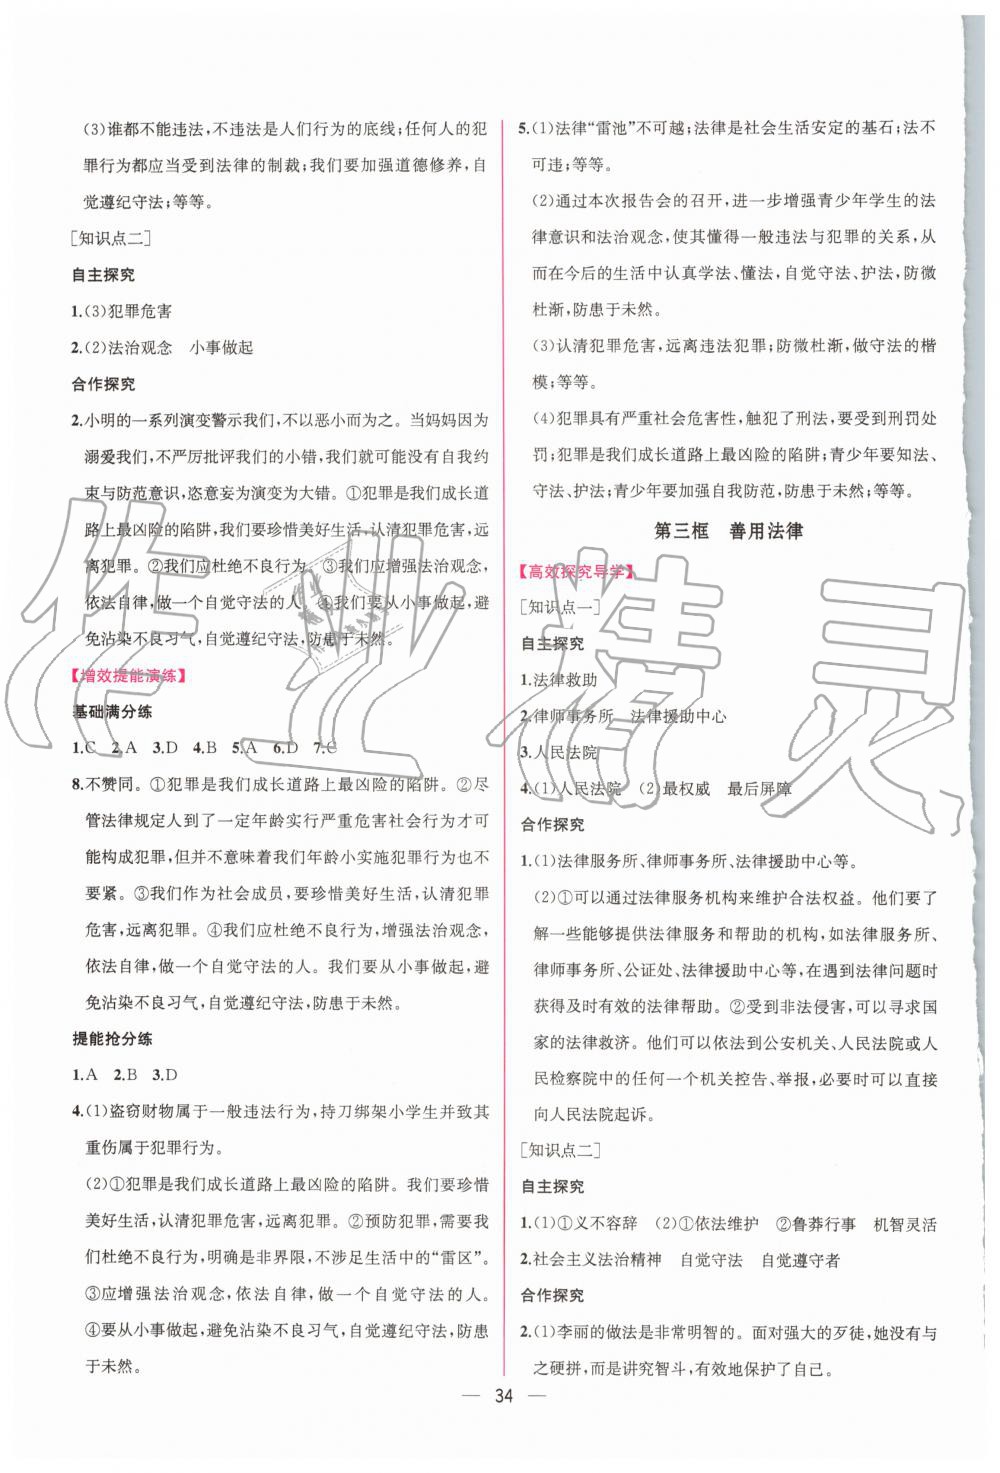 (3)谁都不能违法,不违法是人们行为的底线;任何人的犯
罪行为都应当受到法律的制裁;我们要加强道德修养,自
觉遵纪守法;等等。
[知识点二]
自主探究
1.(3)犯罪危害
2.(2)法治观念 小事做起
合作探究
2.小明的一系列演变警示我们,不以恶小而为之。当妈妈因为
溺爱我们,不严厉批评我们的小错,有可能没有自我约
束与防范意识,恣意妄为演变为大错。①犯罪是我们成长道
路上最凶险的陷阱,我们要珍惜美好生活,认清犯罪危害,远
离犯罪。②我们应杜绝不良行为。③我们应增强法治观念,
依法自律,做一个自觉守法的人。④我们要从小事做起,避
免沾染不良习气,自觉遵纪守法,防患于未然。
【增效提能演练】
基础满分练
1.C 2.A 3.D 4.B 5.A 6.D 7.C
8.不赞同。①犯罪是我们成长道路上最凶险的陷阱。②尽
管法律规定人到了一定年龄实行严重危害社会行为才可
能构成犯罪,但并不意味着我们年龄小实施犯罪行为也不
要紧。③我们作为社会成员,要珍惜美好生活,认清犯罪
危害,远离犯罪。④我们应杜绝不良行为,增强法治观念,
依法自律,做一个自觉守法的人。⑤我们要从小事做起,避
免沾染不良习气,自觉遵纪守法,防患于未然。
提能抢分练
1.A 2.B 3.D
4.(1)盗窃财物属于一般违法行为,持刀绑架小学生并致其
重伤属于犯罪行为。
(2)①犯罪是我们成长道路上最凶险的陷阱。我们要珍惜
美好生活,认清犯罪危害,远离犯罪。②预防犯罪,需要我
们杜绝不良行为,明确是非界限,不涉足生活中的“雷区”。
③应增强法治观念,依法自律,做一个自觉守法的人。
④要从小事做起,避免沾染不良习气,自觉遵纪守法,防患
于未然。
5.(1)法律“雷池”不可越;法律是社会生活安定的基石;法不
可违;等等。
(2)通过本次报告会的召开,进一步增强青少年学生的法
律意识和法治观念,使其懂得一般违法与犯罪的关系,从
而在今后的生活中认真学法、懂法,自觉守法、护法,防微
杜渐,防患于未然。
(3)认清犯罪危害,远离违法犯罪;防微杜渐,做守法的楷
模;等等。
(4)犯罪具有严重社会危害性,触犯了刑法,要受到刑罚处
罚;犯罪是我们成长道路上最凶险的陷阱;青少年要知法、
守法、护法;青少年要加强自我防范,防患于未然;等等。
第三框 善用法律
【高效探究导学】
[知识点一]
自主探究
1.法律救助
2.律师事务所 法律援助中心
3.人民法院
4.(1)人民法院 (2)最权威 最后屏障
合作探究
1.(1)法律服务所、律师事务所、法律援助中心等。
(2)①可以通过法律服务机构来维护合法权益。他们要了
解一些能够提供法律服务和帮助的机构,如法律服务所、
律师事务所、公证处、法律援助中心等,在遇到法律问题时
获得及时有效的法律帮助。②受到非法侵害,可以寻求国
家的法律救济。他们可以依法到公安机关、人民法院或人
民检察院中的任何一个机关控告、举报,必要时可以直接
向人民法院起诉。
[知识点二]
自主探究
1.(1)①义不容辞 (2)①依法维护 ②鲁莽行事 机智灵活
2.社会主义法治精神 自觉守法 自觉遵守者
合作探究
2.(1)李丽的做法是非常明智的。面对强大的歹徒,她没有与
之硬拼,而是讲究智斗,有效地保护了自己。
— 34 —
作业精灵